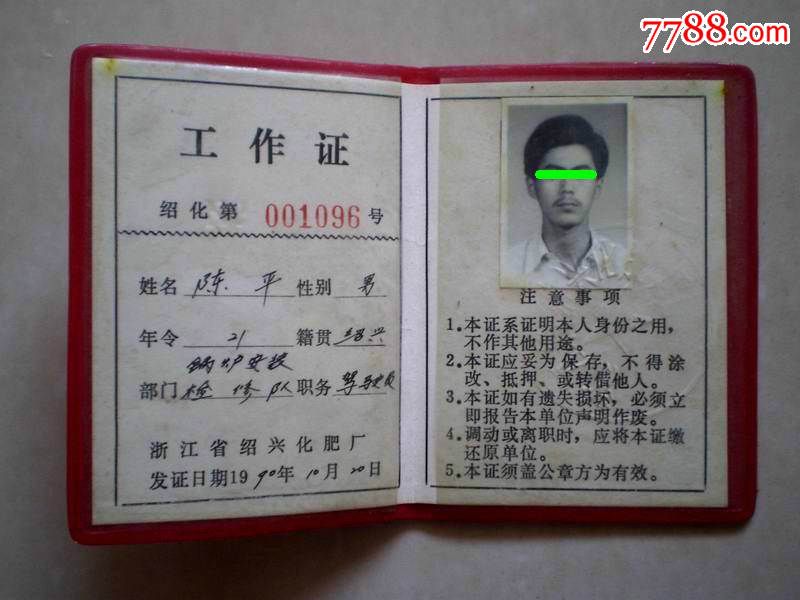 7788.com
工作证
绍化第 001096 号
姓名 陈平 性别 男
年令 21 籍贯 绍兴
锅炉安装
部门 检修队 职务
浙江省绍兴化肥厂
发证日期1990年10月20日
注意事项
1.本证系证明本人身份之用,
不作其他用途。
2.本证应妥为保存,不得涂
改、抵押、或转借他人。
3.本证如有遗失损坏,必须立
即报告本单位声明作废。
4.调动或离职时,应将本证缴
还原单位。
5.本证须盖公章方为有效。